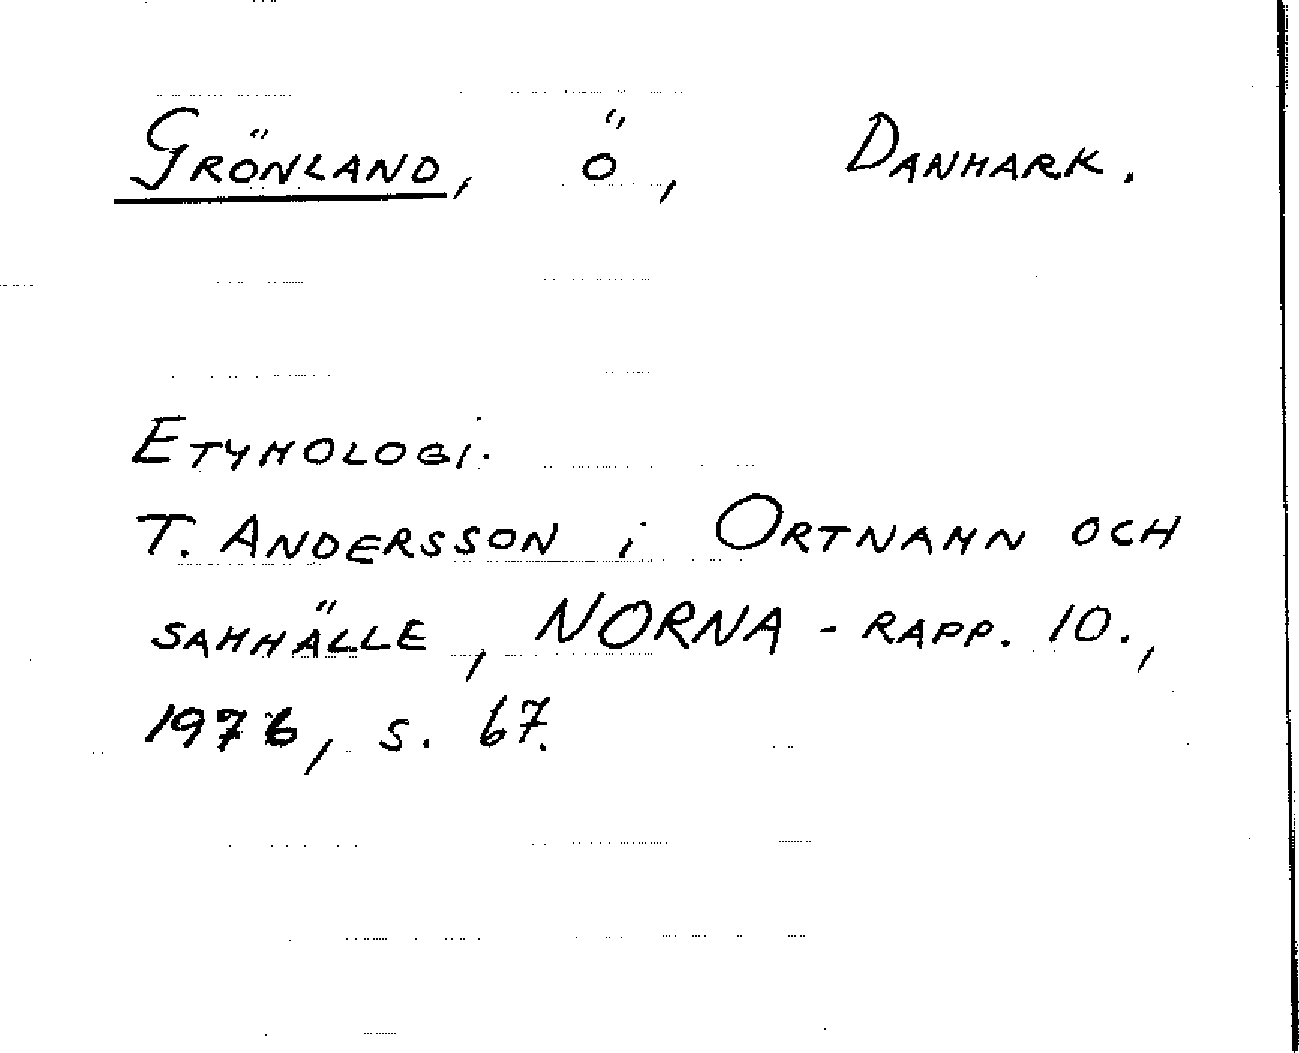 GRÖNLAND, Ö, DANMARK.
ETYMOLOGI.
T. ANDERSSON i ORTNAMN OCH
SAMHÄLLE, NORNA-RAPP. 10.,
1976, S. 67.